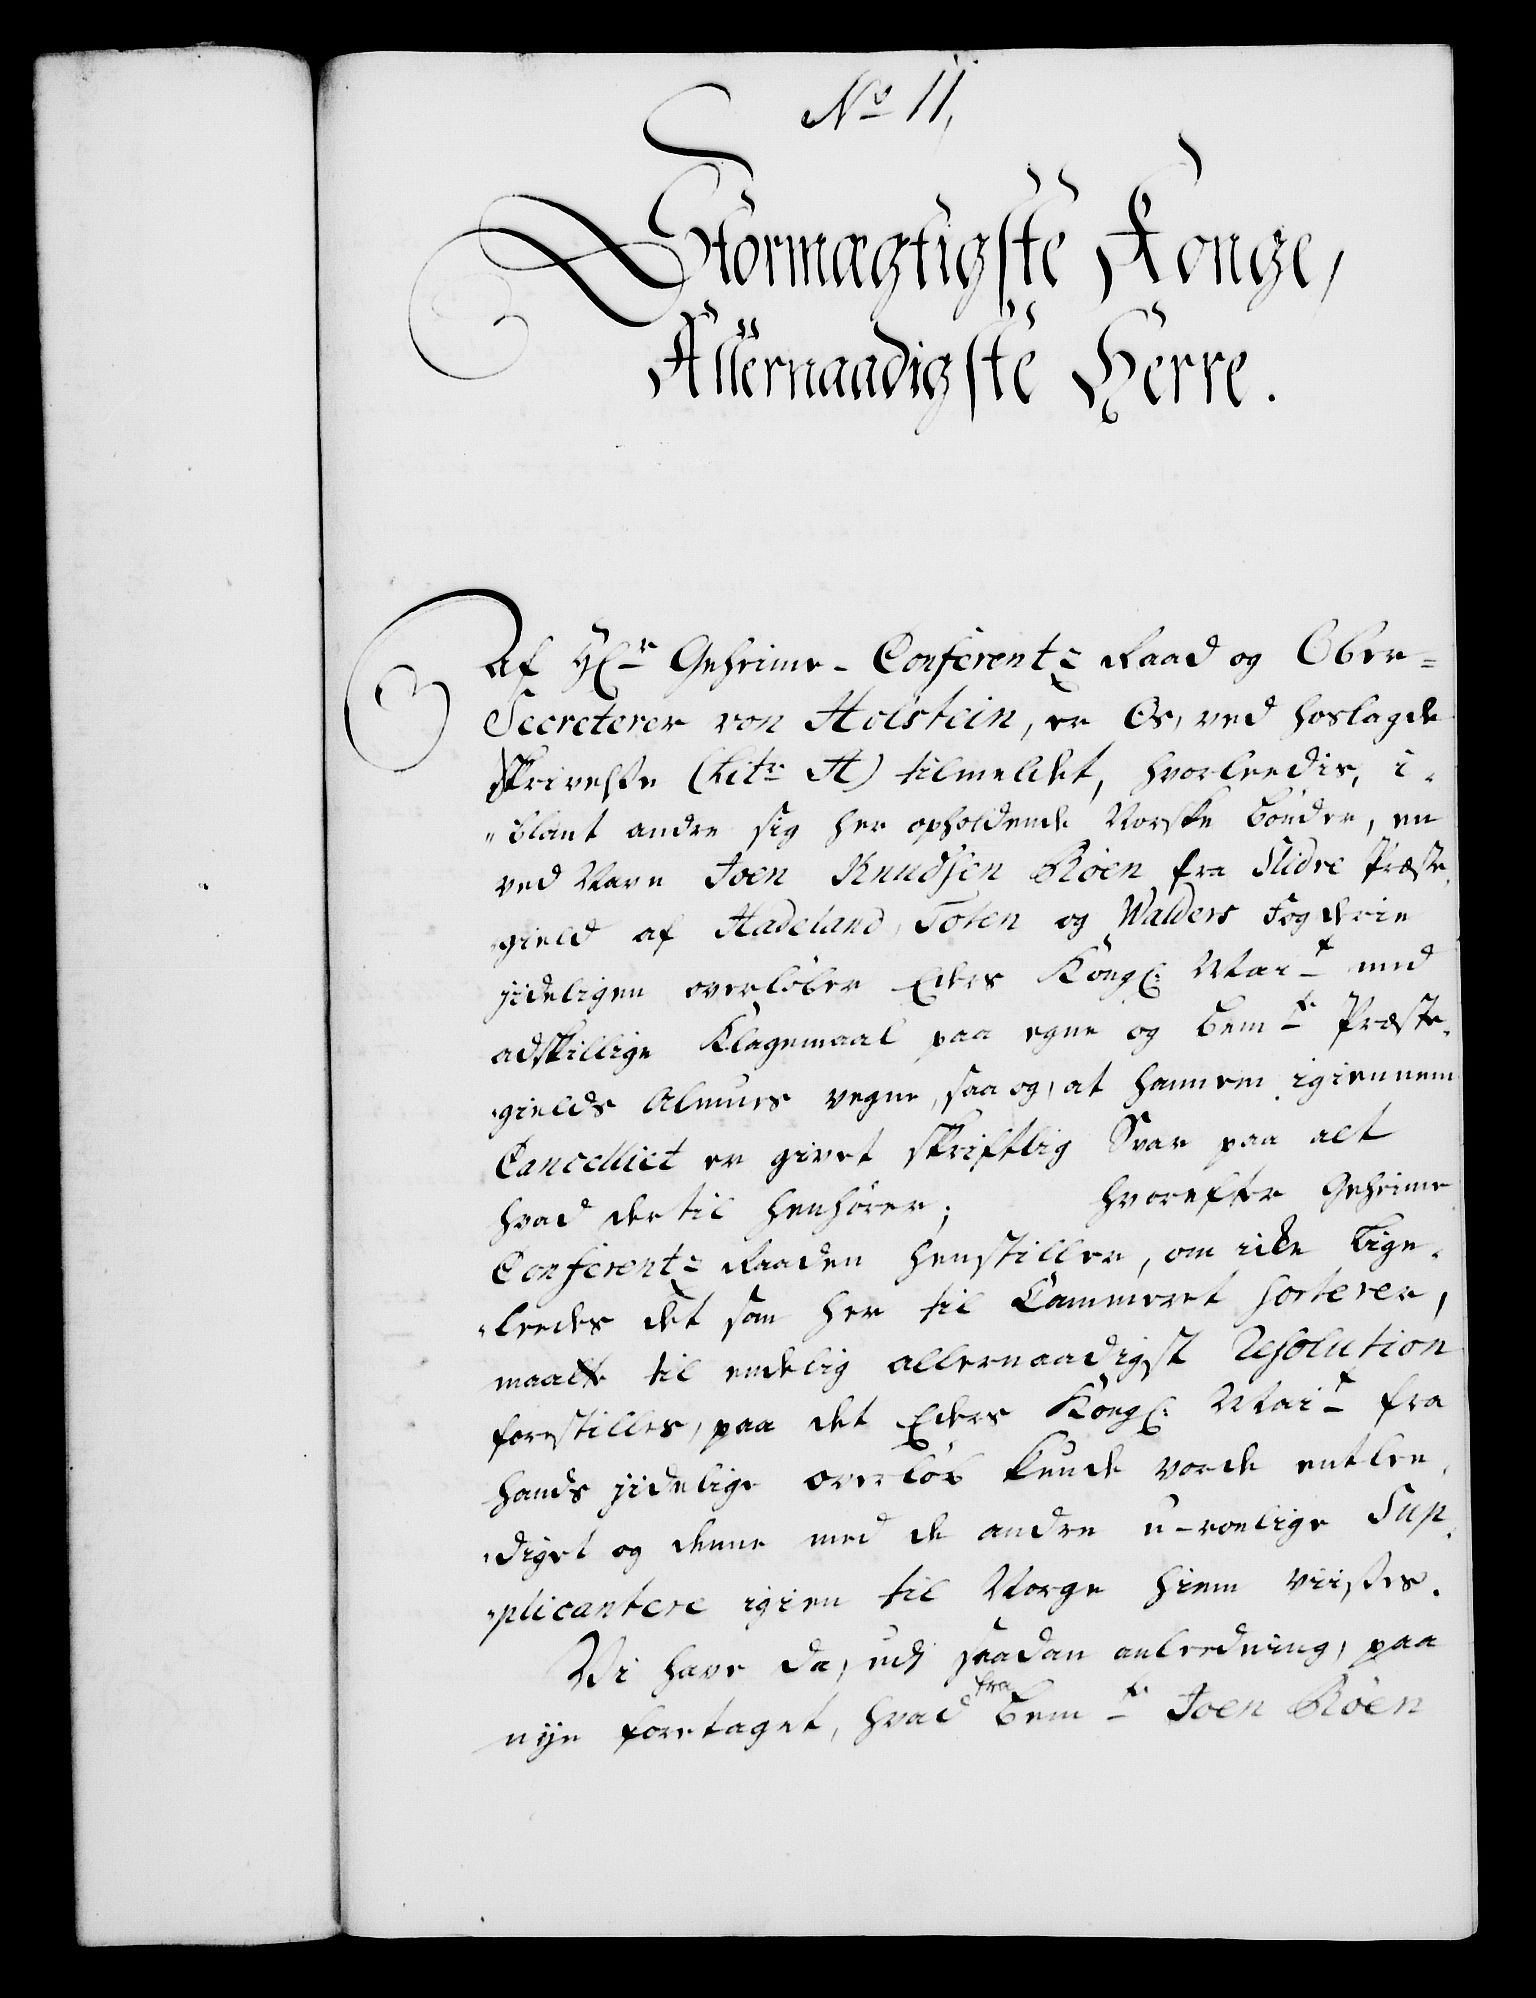 No 11,
Stormægtigste Konge,
Allernaadigste Herre.
Af Hr Geheime-Conferentz Raad og Ober=
Secreterer von Holstein, er Os, ved hoslagde
Skrivelse (Litr A) tilmeldet, hvorleedis, i-
blant andre sig her opholdende Norske bønder, en
ved Navn Joen Knudsen Røen fra Slidre Præste-
gield af Hadeland, Toten og Walders Fogderie
jideligen overløber Eders Kongl: Mait med
adskillige Klagemaal paa egne og bemte Præste-
gields Almues vegne, saa og, at hannem igiennem
Cancelliet er givet skriftlig Svar paa alt
hvad dertil henhører; hvorefter Geheime
Conferentz Raaden henstiller, om icke lige-
leedes det som her til Cammeret sorterer,
maatte til endelig allernaadigst Resolution
forestilles, paa det Eders Kongl: Mait fra
hands jidelige overløb kunde vorde entlee-
diget og denne med de andre u-roelige Sup-
plicantere igien til Norge hiem viises.
Vi have da, udj saadan anleedning, paa
nye foretaget, hvad fra bemte Joen Røen